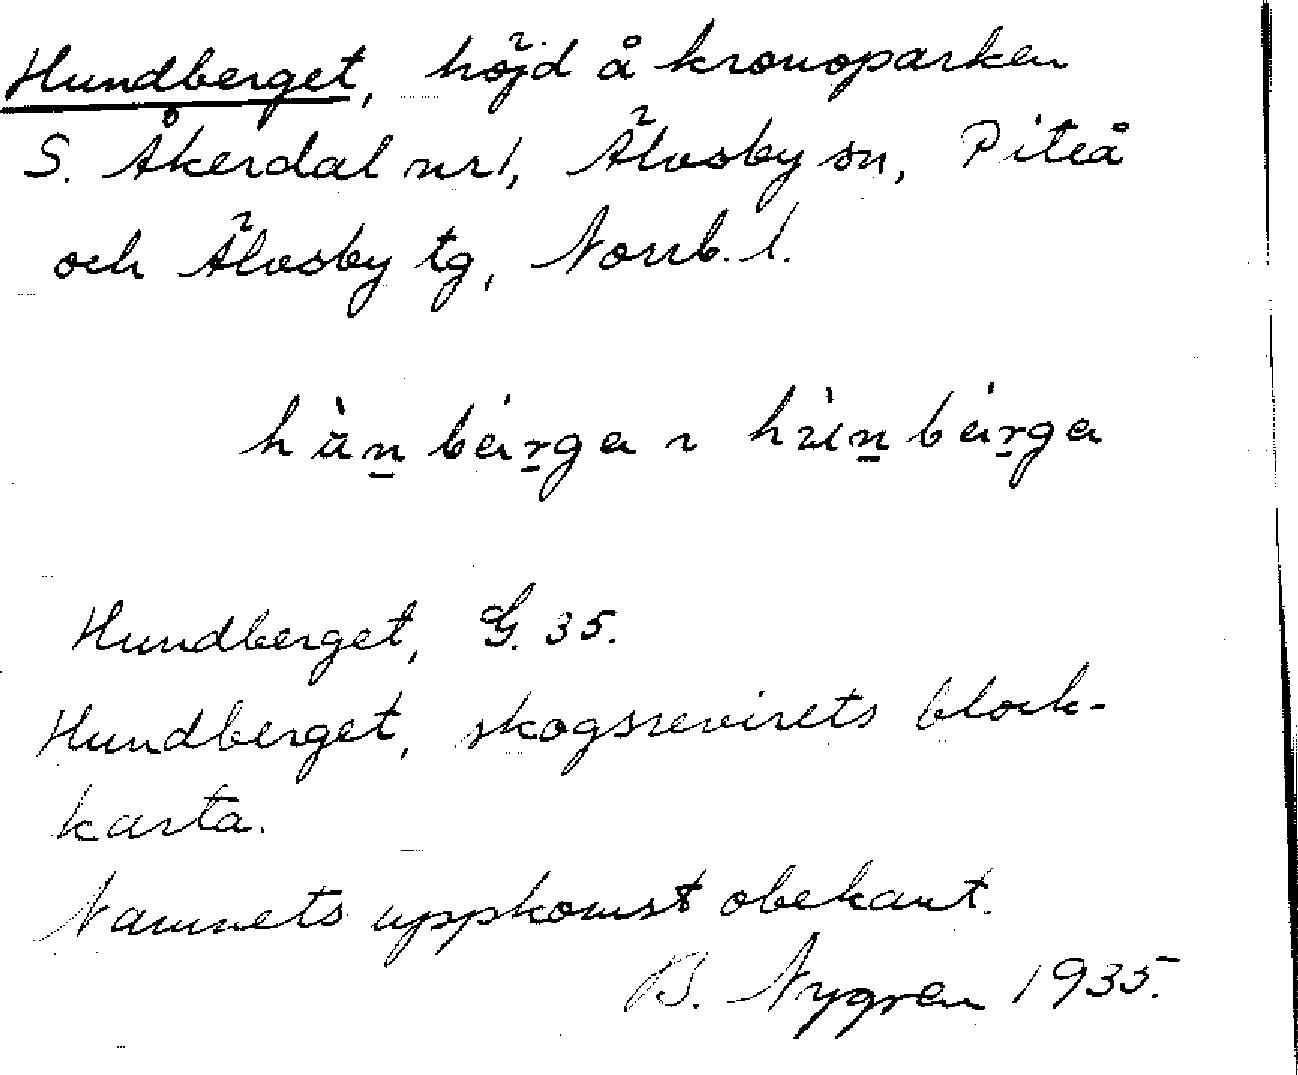 Hundberget, höjd å kronoparken
S. Åkerdal nr 1, Älvsby sn, Piteå
och Älvsby tg, Norrb. l.
Hundberget, G. 35.
Hundberget, skogsrevirets block-
karta.
Namnets uppkomst obekant.
B. Nygren 1935.